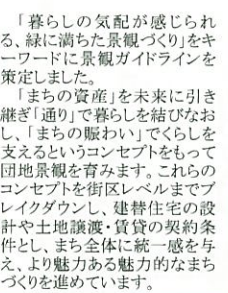 「暮らしの気配が感じられ
る、緑に満ちた景観づくり」をキ
ーワードに景観ガイドラインを
策定しました。
「まちの資産」を未来に引き
継ぎ「通り」で暮らしを結びなお
し、「まちの賑わい」でくらしを
支えるというコンセプトをもって
団地景観を育みます。これらの
コンセプトを街区レベルまでブ
レイクダウンし、建替住宅の設
計や土地譲渡・賃貸の契約条
件とし、まち全体に統一感を与
え、より魅力ある魅力的なまち
づくりを進めています。